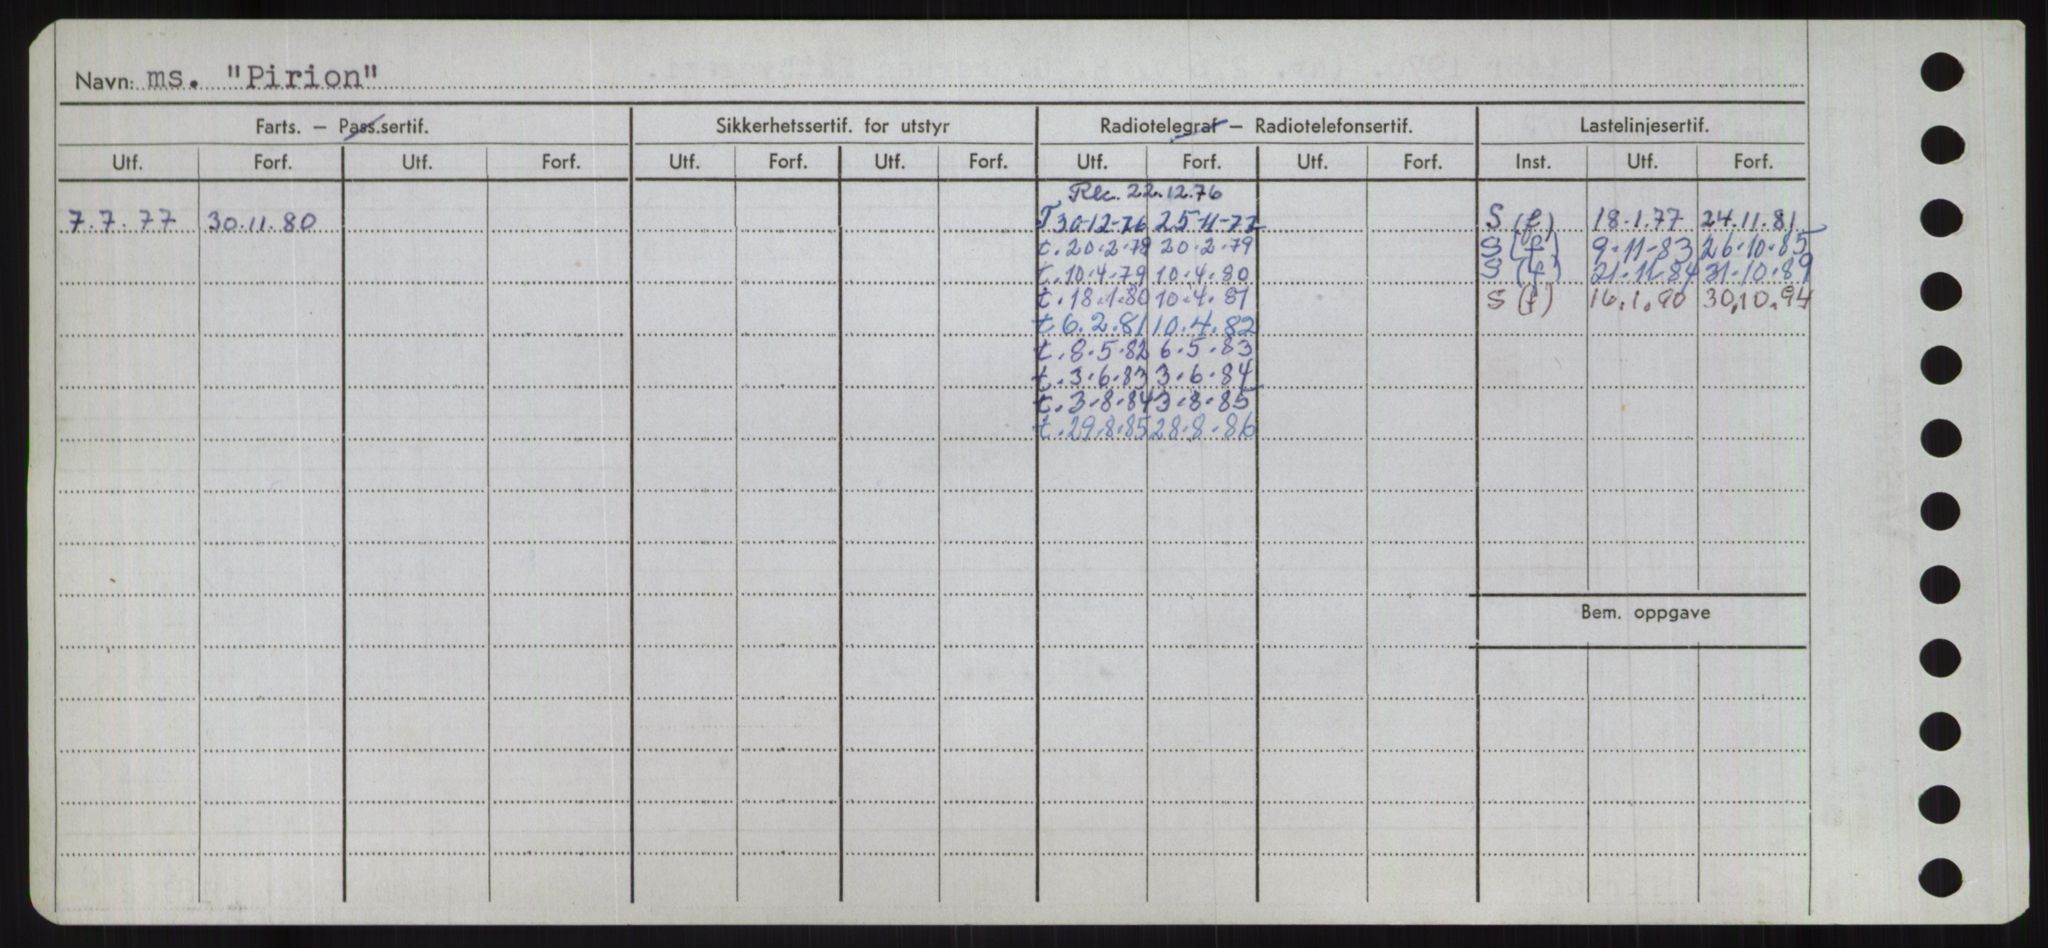 Navn: ms. "Pirion"
Farts. — Pass.sertif. Sikkerhetssertif. for utstyr Radiotelegraf — Radiotelefonsertif. Lastelinjesertif.
Utf. Forf. Utf. Forf. Utf. Forf. Utf. Forf. Utf. Forf. Utf. Forf. Inst. Utf. Forf.
Rk. 22.12.76
7.7.77 30.11.80 T 30-12-76 25-11-77 S (f) 18.1.77 24.11.81
t. 20.2.78 20.2.79 S (f) 9.11.83 26.10.85
t. 10.4.79 10.4.80 S (f) 21.11.84 31.10.89
t. 18.1.80 10.4.81 S (f) 16.1.90 30.10.94
t. 6.2.81 10.4.82
t. 8.5.82 6.5.83
t. 3.6.83 3.6.84
t. 3.8.84 3.8.85
t. 29.8.85 28.8.86
Bem. oppgave